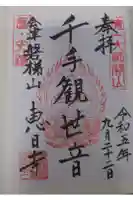 奉拝
令和五年
九月二十二日
千手観世音
会津磐梯山 恵日寺